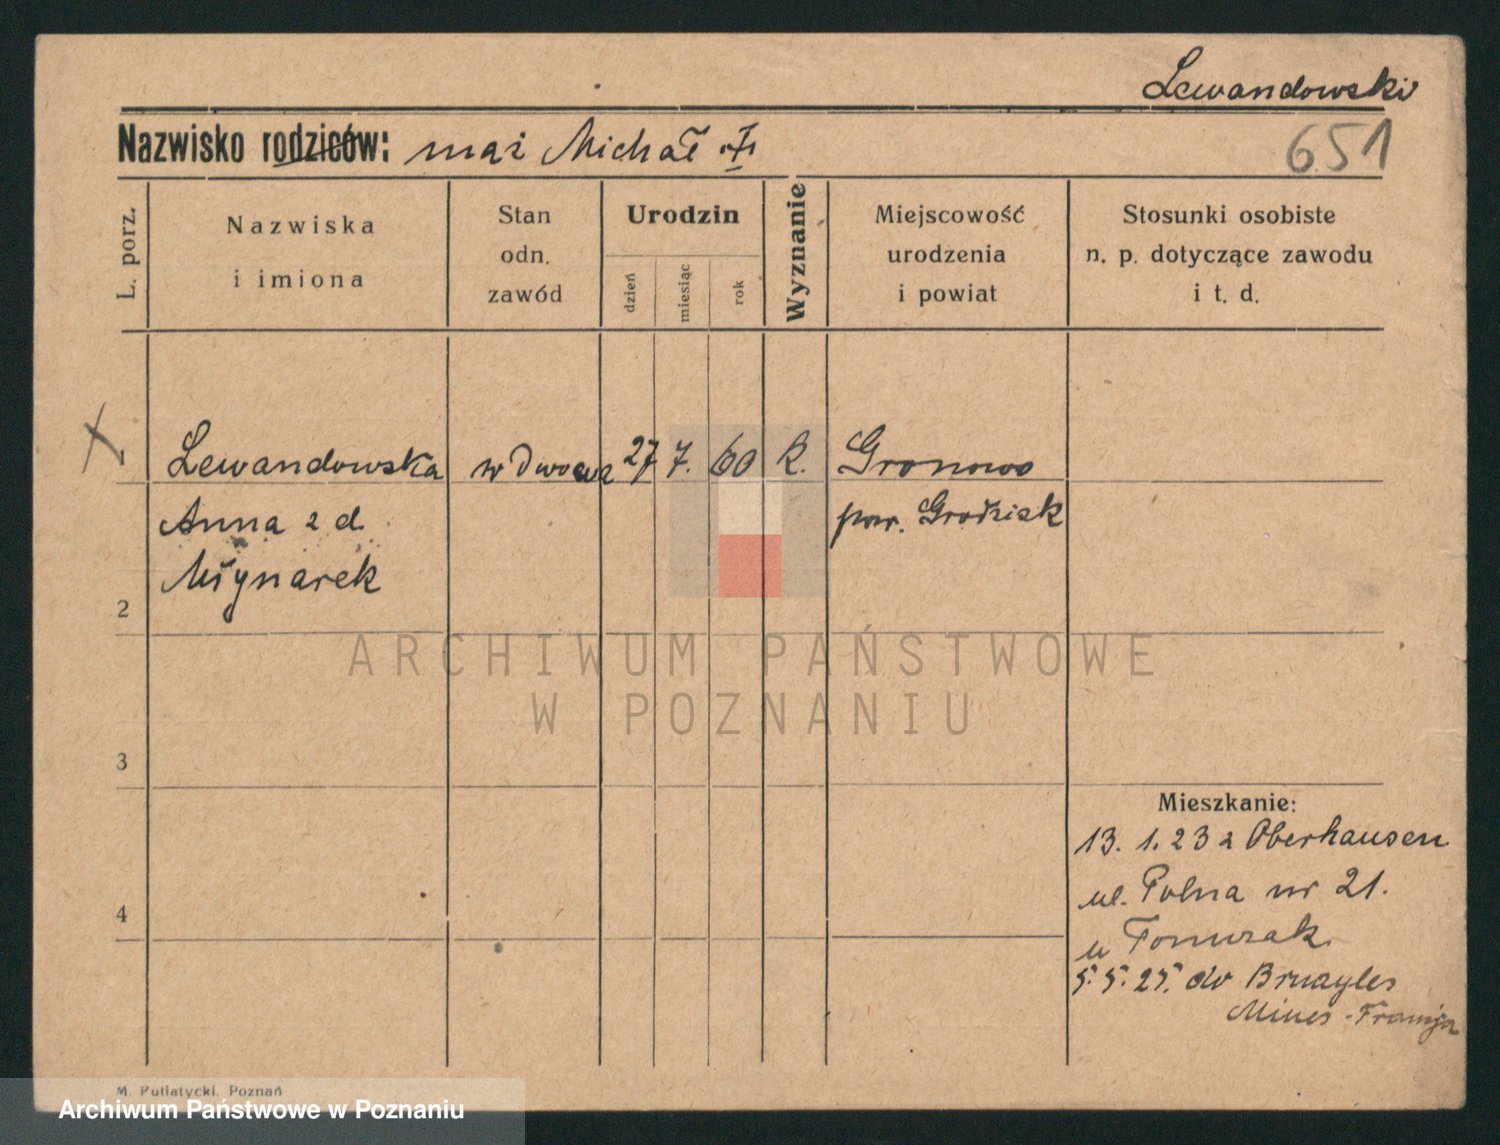 Lewandowski
Nazwisko rodziców: mąż Michał
651
L. porz.
Nazwiska
i imiona
Stan
odn.
zawód
Urodzin
dzień
miesiąc
rok
Wyznanie
Miejscowość
urodzenia
i powiat
Stosunki osobiste
n. p. dotyczące zawodu
i t. d.
Lewandowska wdowa 27 7. 60 k. Gronowo
Anna z d. pow. Grodzisk
Młynarek
2
3
4
ARCHIWUM PAŃSTWOWE
W POZNANIU
Mieszkanie:
13. 1. 23 z Oberhausen
ul. Polna nr 21.
u
5. 5. 25. do Bruayles
Mines - Francja
M. Putiatycki. Poznań
Archiwum Państwowe w Poznaniu